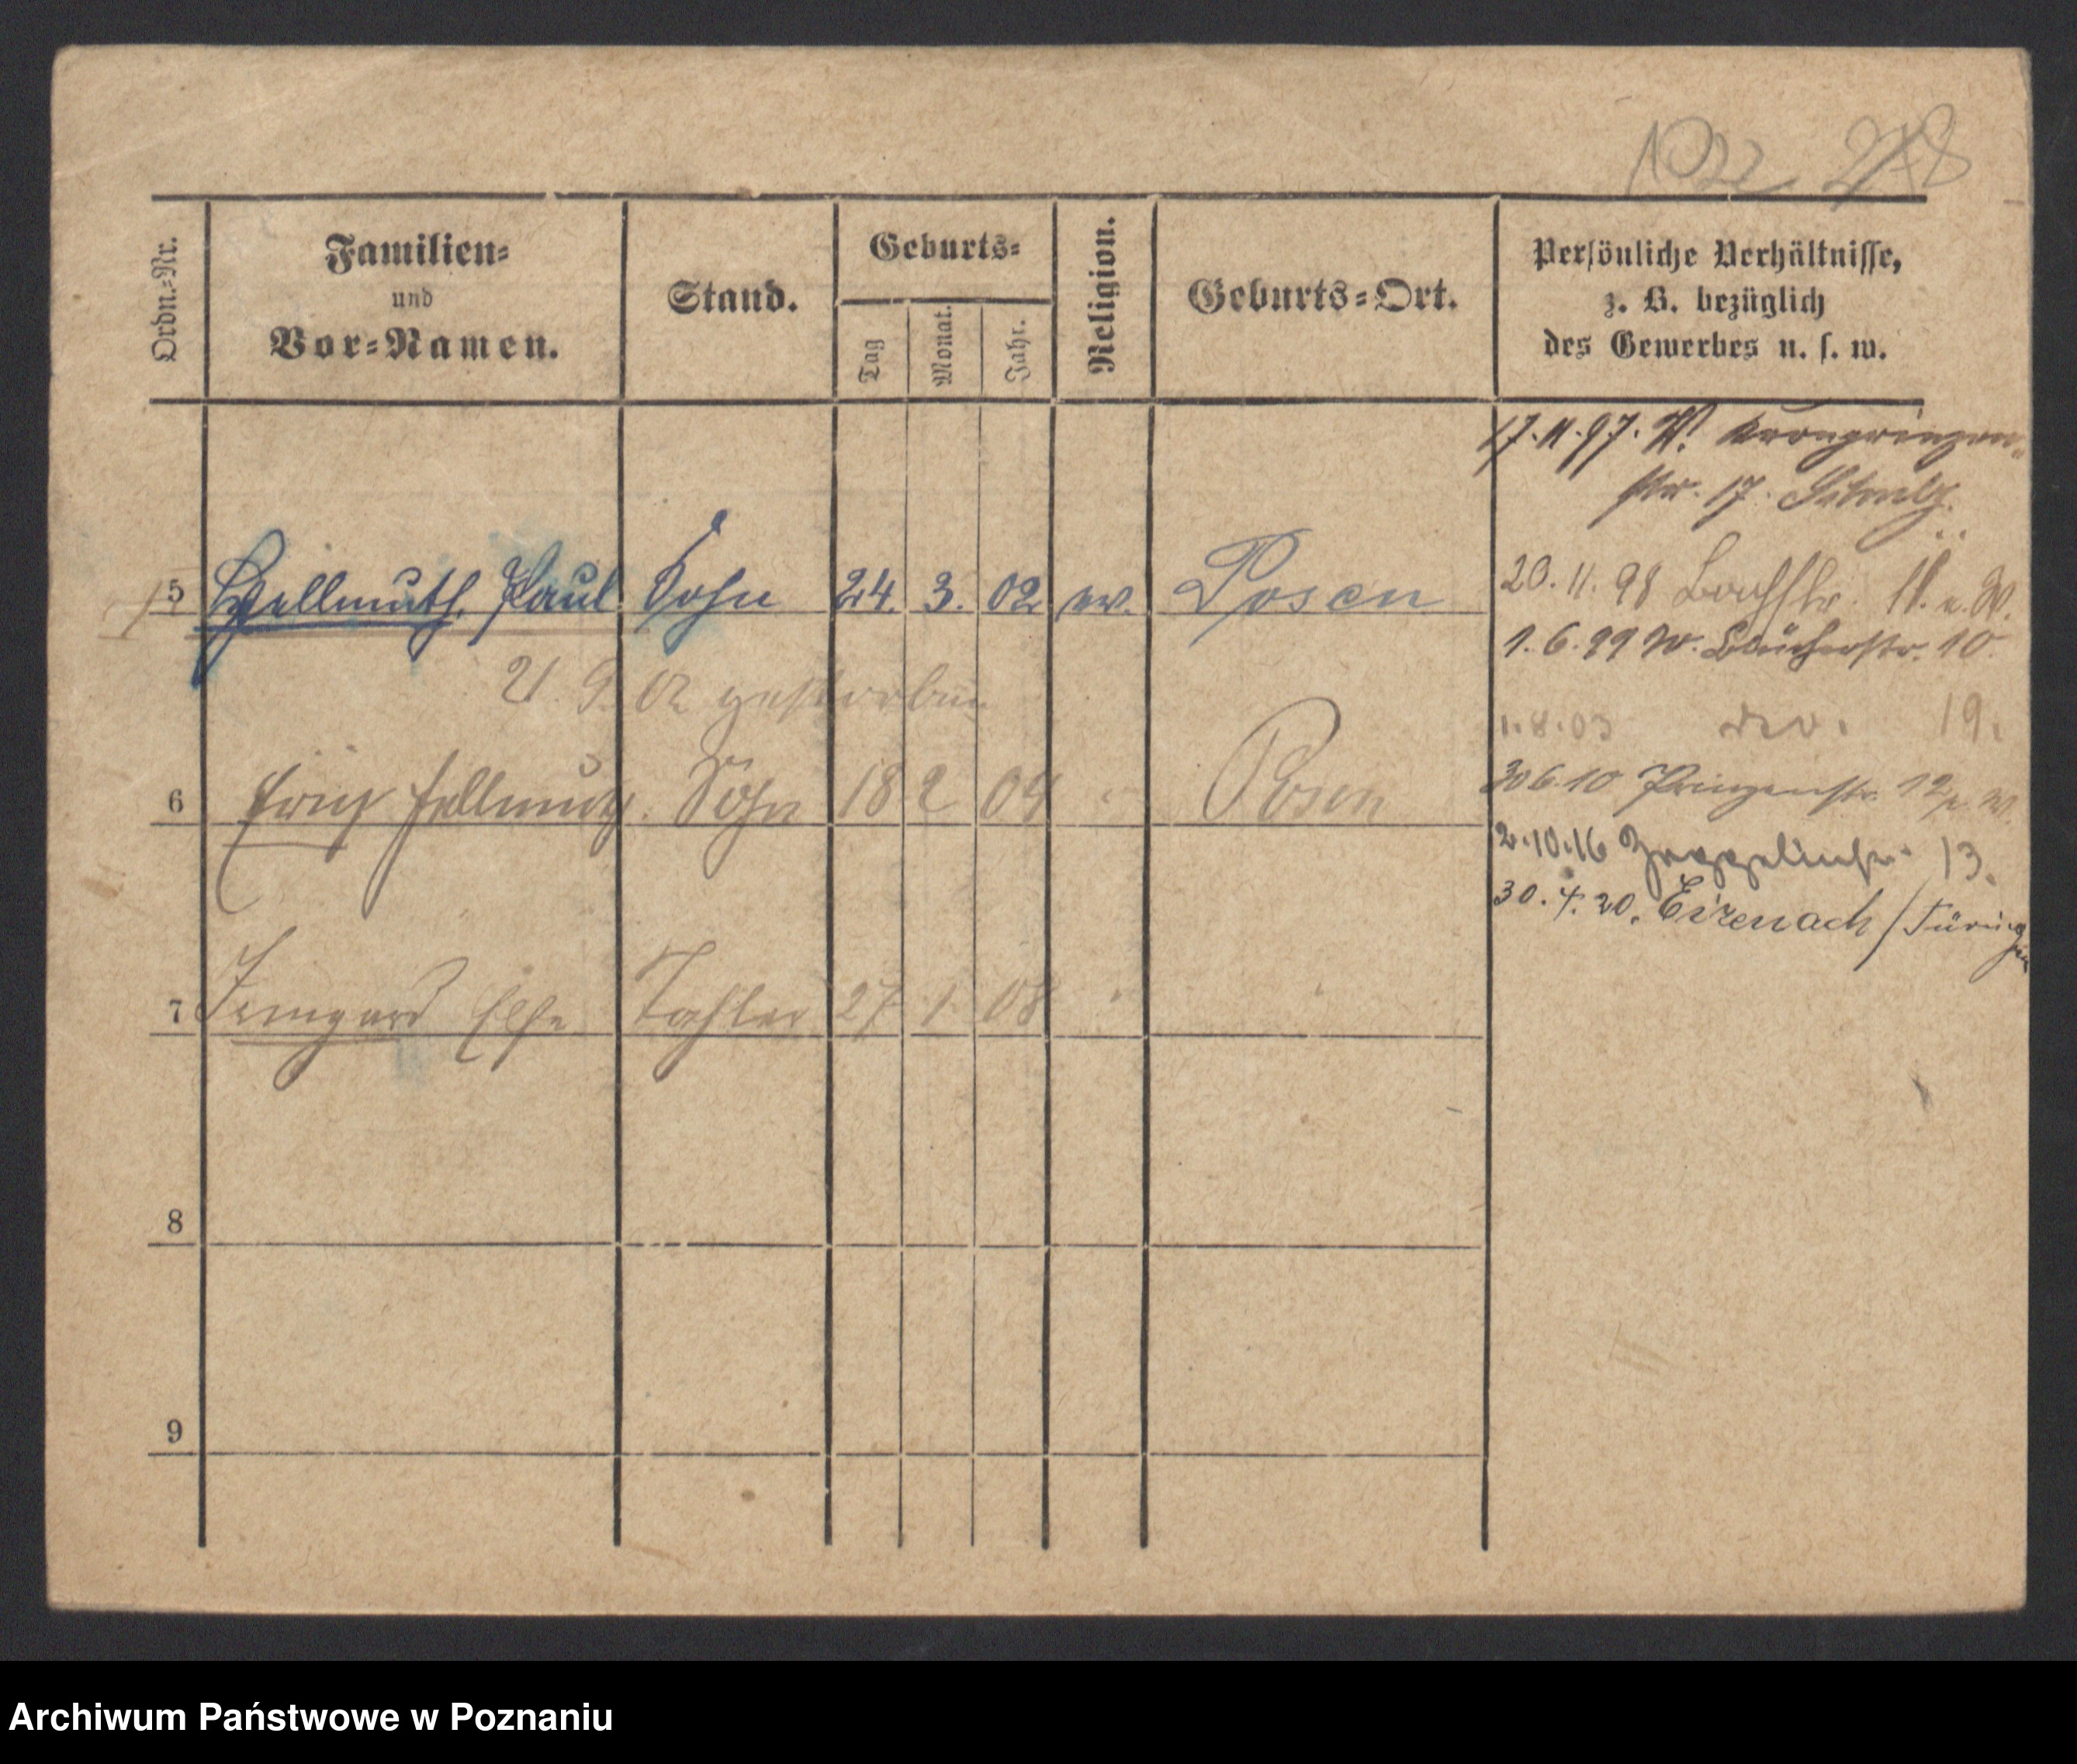 1022 278
Ordn.-Nr.
Familien-
und
Vor-Namen.
Stand.
Geburts-
Tag
Monat.
Jahr.
Religion.
Geburts-Ort.
Persönliche Verhältnisse,
z. B. bezüglich
des Gewerbes u. s. w.
17.11.97. W. Kronprinzen-
str. 17.
5 Hellmuth, Paul Sohn 24. 3. 02 ev. Posen
21. 9. 02 gestorben
6 Hellmuth. Sohn 18 2 04 Posen
7 Irmgard Else Tochter 27 1 08
8
9
20.11.98 Bachstr. 11. W.
1.6.99 W. Blücherstr. 10.
1.8.03 19.
30 6 10 Prinzenstr. 12
2.10.16 Zeppelinstr. 13.
30.4.20. Eizenach / Türingen
Archiwum Państwowe w Poznaniu